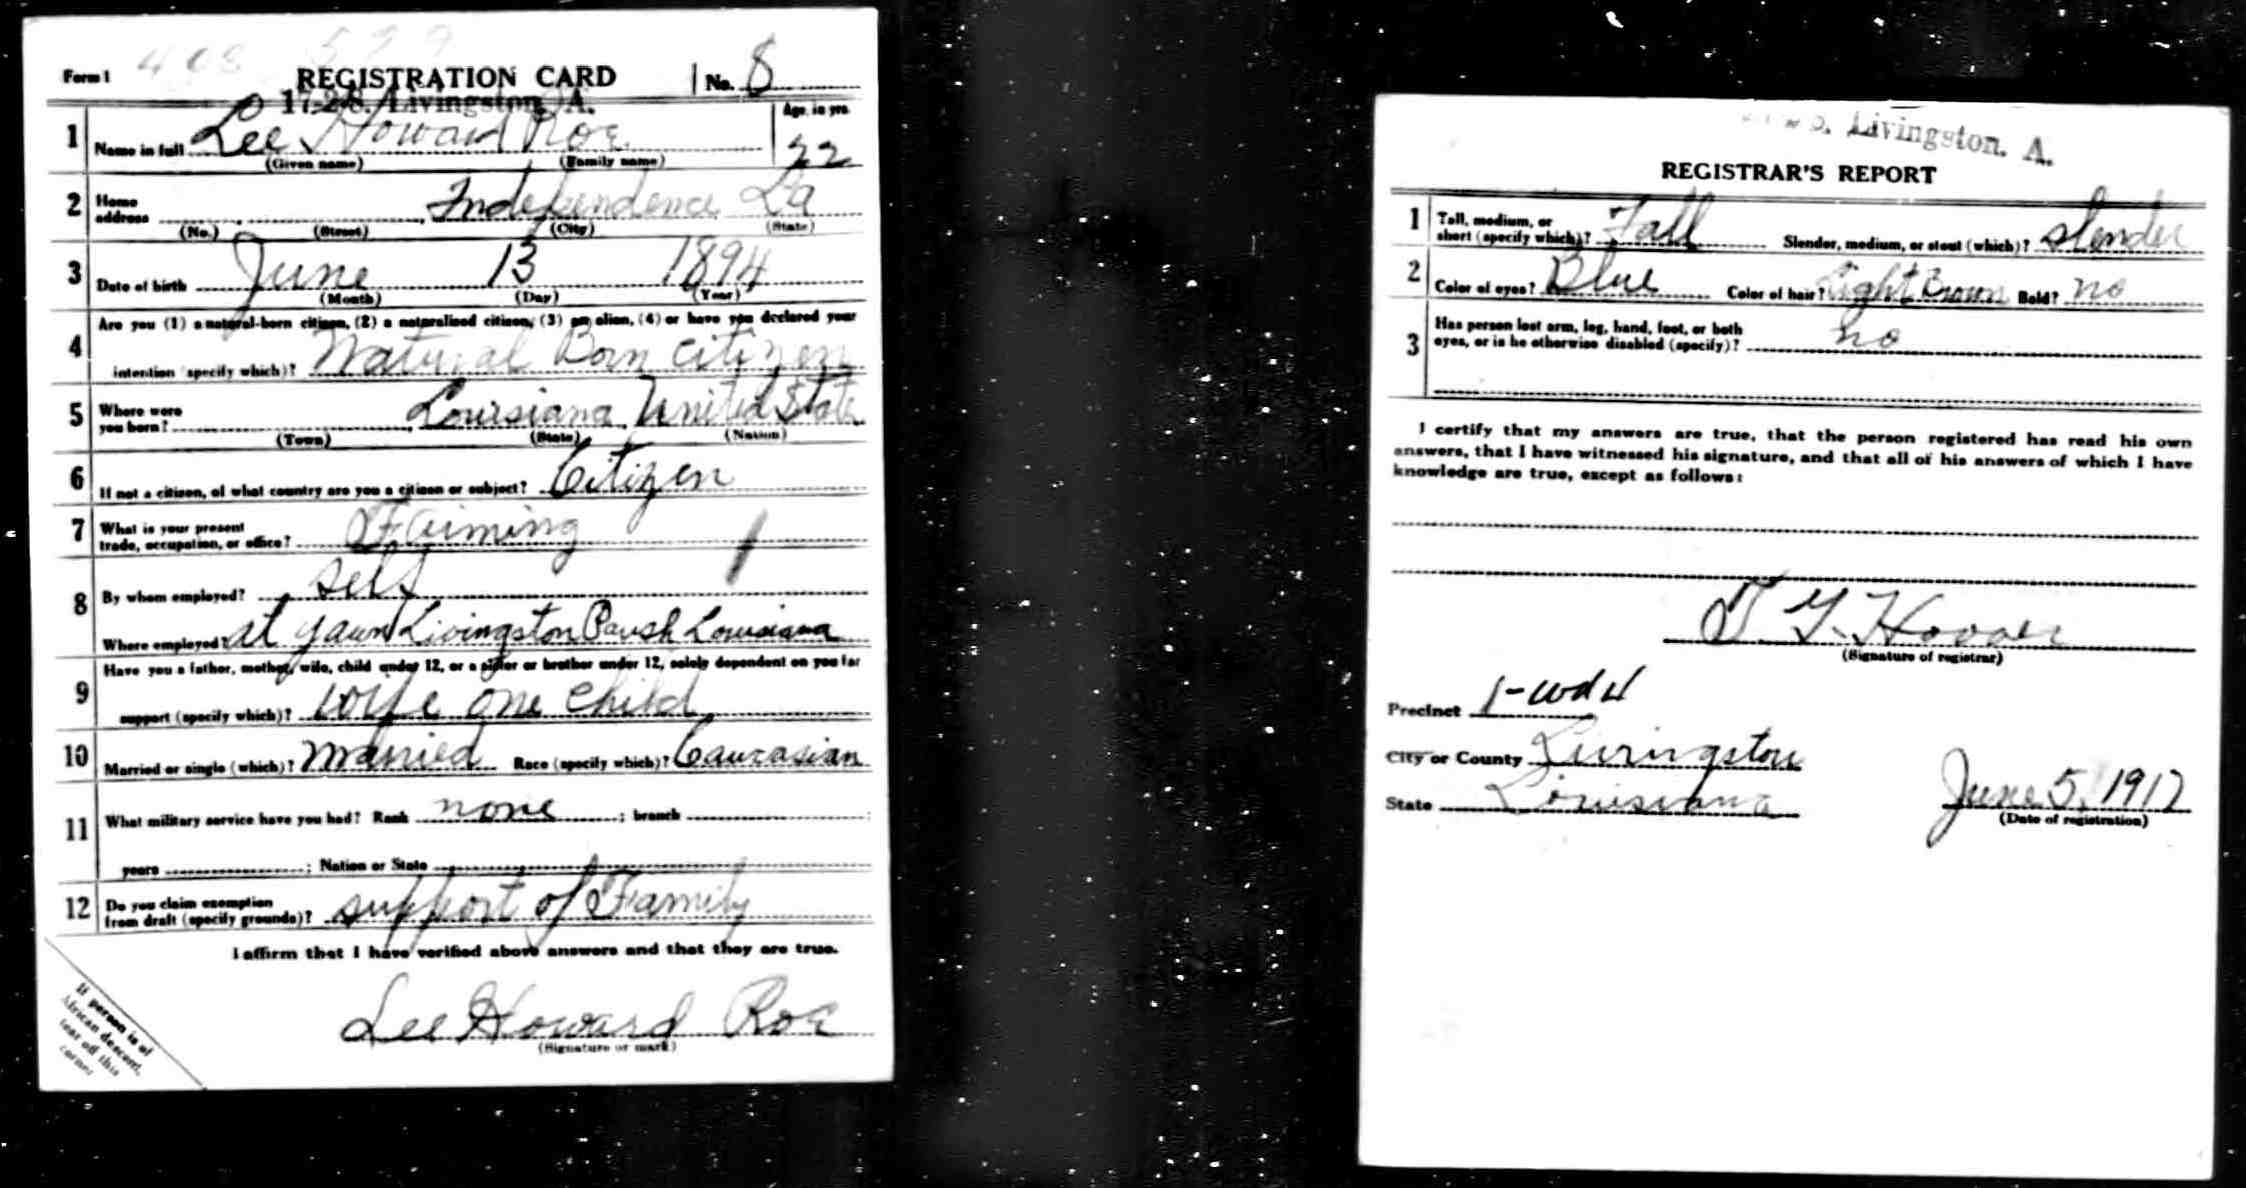 Form 1
408 599
REGISTRATION CARD No. 8
17-28. Livingston, A.
Age, in yrs.
1 Name in full Lee Howard Roe 22
(Given name) (Family name)
2 Home address Independence La
(No.) (Street) (City) (State)
3 Date of birth June 13 1894
(Month) (Day) (Year)
Are you (1) a natural-born citizen, (2) a naturalized citizen, (3) an alien, (4) or have you declared your
4 intention (specify which)? Natural Born citizen
5 Where were you born? Louisiana United State
(Town) (State) (Nation)
6 If not a citizen, of what country are you a citizen or subject? Citizen
7 What is your present trade, occupation, or office? Farming
8 By whom employed? self
Where employed? at yawn Livingston Parish Louisiana
Have you a father, mother, wife, child under 12, or a sister or brother under 12, solely dependent on you for
9 support (specify which)? wife one child
10 Married or single (which)? Married Race (specify which)? Caucasian
11 What military service have you had? Rank none ; branch
years ; Nation or State
12 Do you claim exemption from draft (specify grounds)? support of Family
I affirm that I have verified above answers and that they are true.
Lee Howard Roe
(Signature or mark)
If person is of
African descent,
tear off this
corner
Livingston, A.
REGISTRAR'S REPORT
1 Tall, medium, or short (specify which)? Tall Slender, medium, or stout (which)? slender
2 Color of eyes? Blue Color of hair? Light Brown Bald? no
3 Has person lost arm, leg, hand, foot, or both eyes, or is he otherwise disabled (specify)? no
I certify that my answers are true, that the person registered has read his own
answers, that I have witnessed his signature, and that all of his answers of which I have
knowledge are true, except as follows:
(Signature of registrar)
Precinct 1-wd 4
City or County Livingston
State Louisiana
June 5, 1917
(Date of registration)